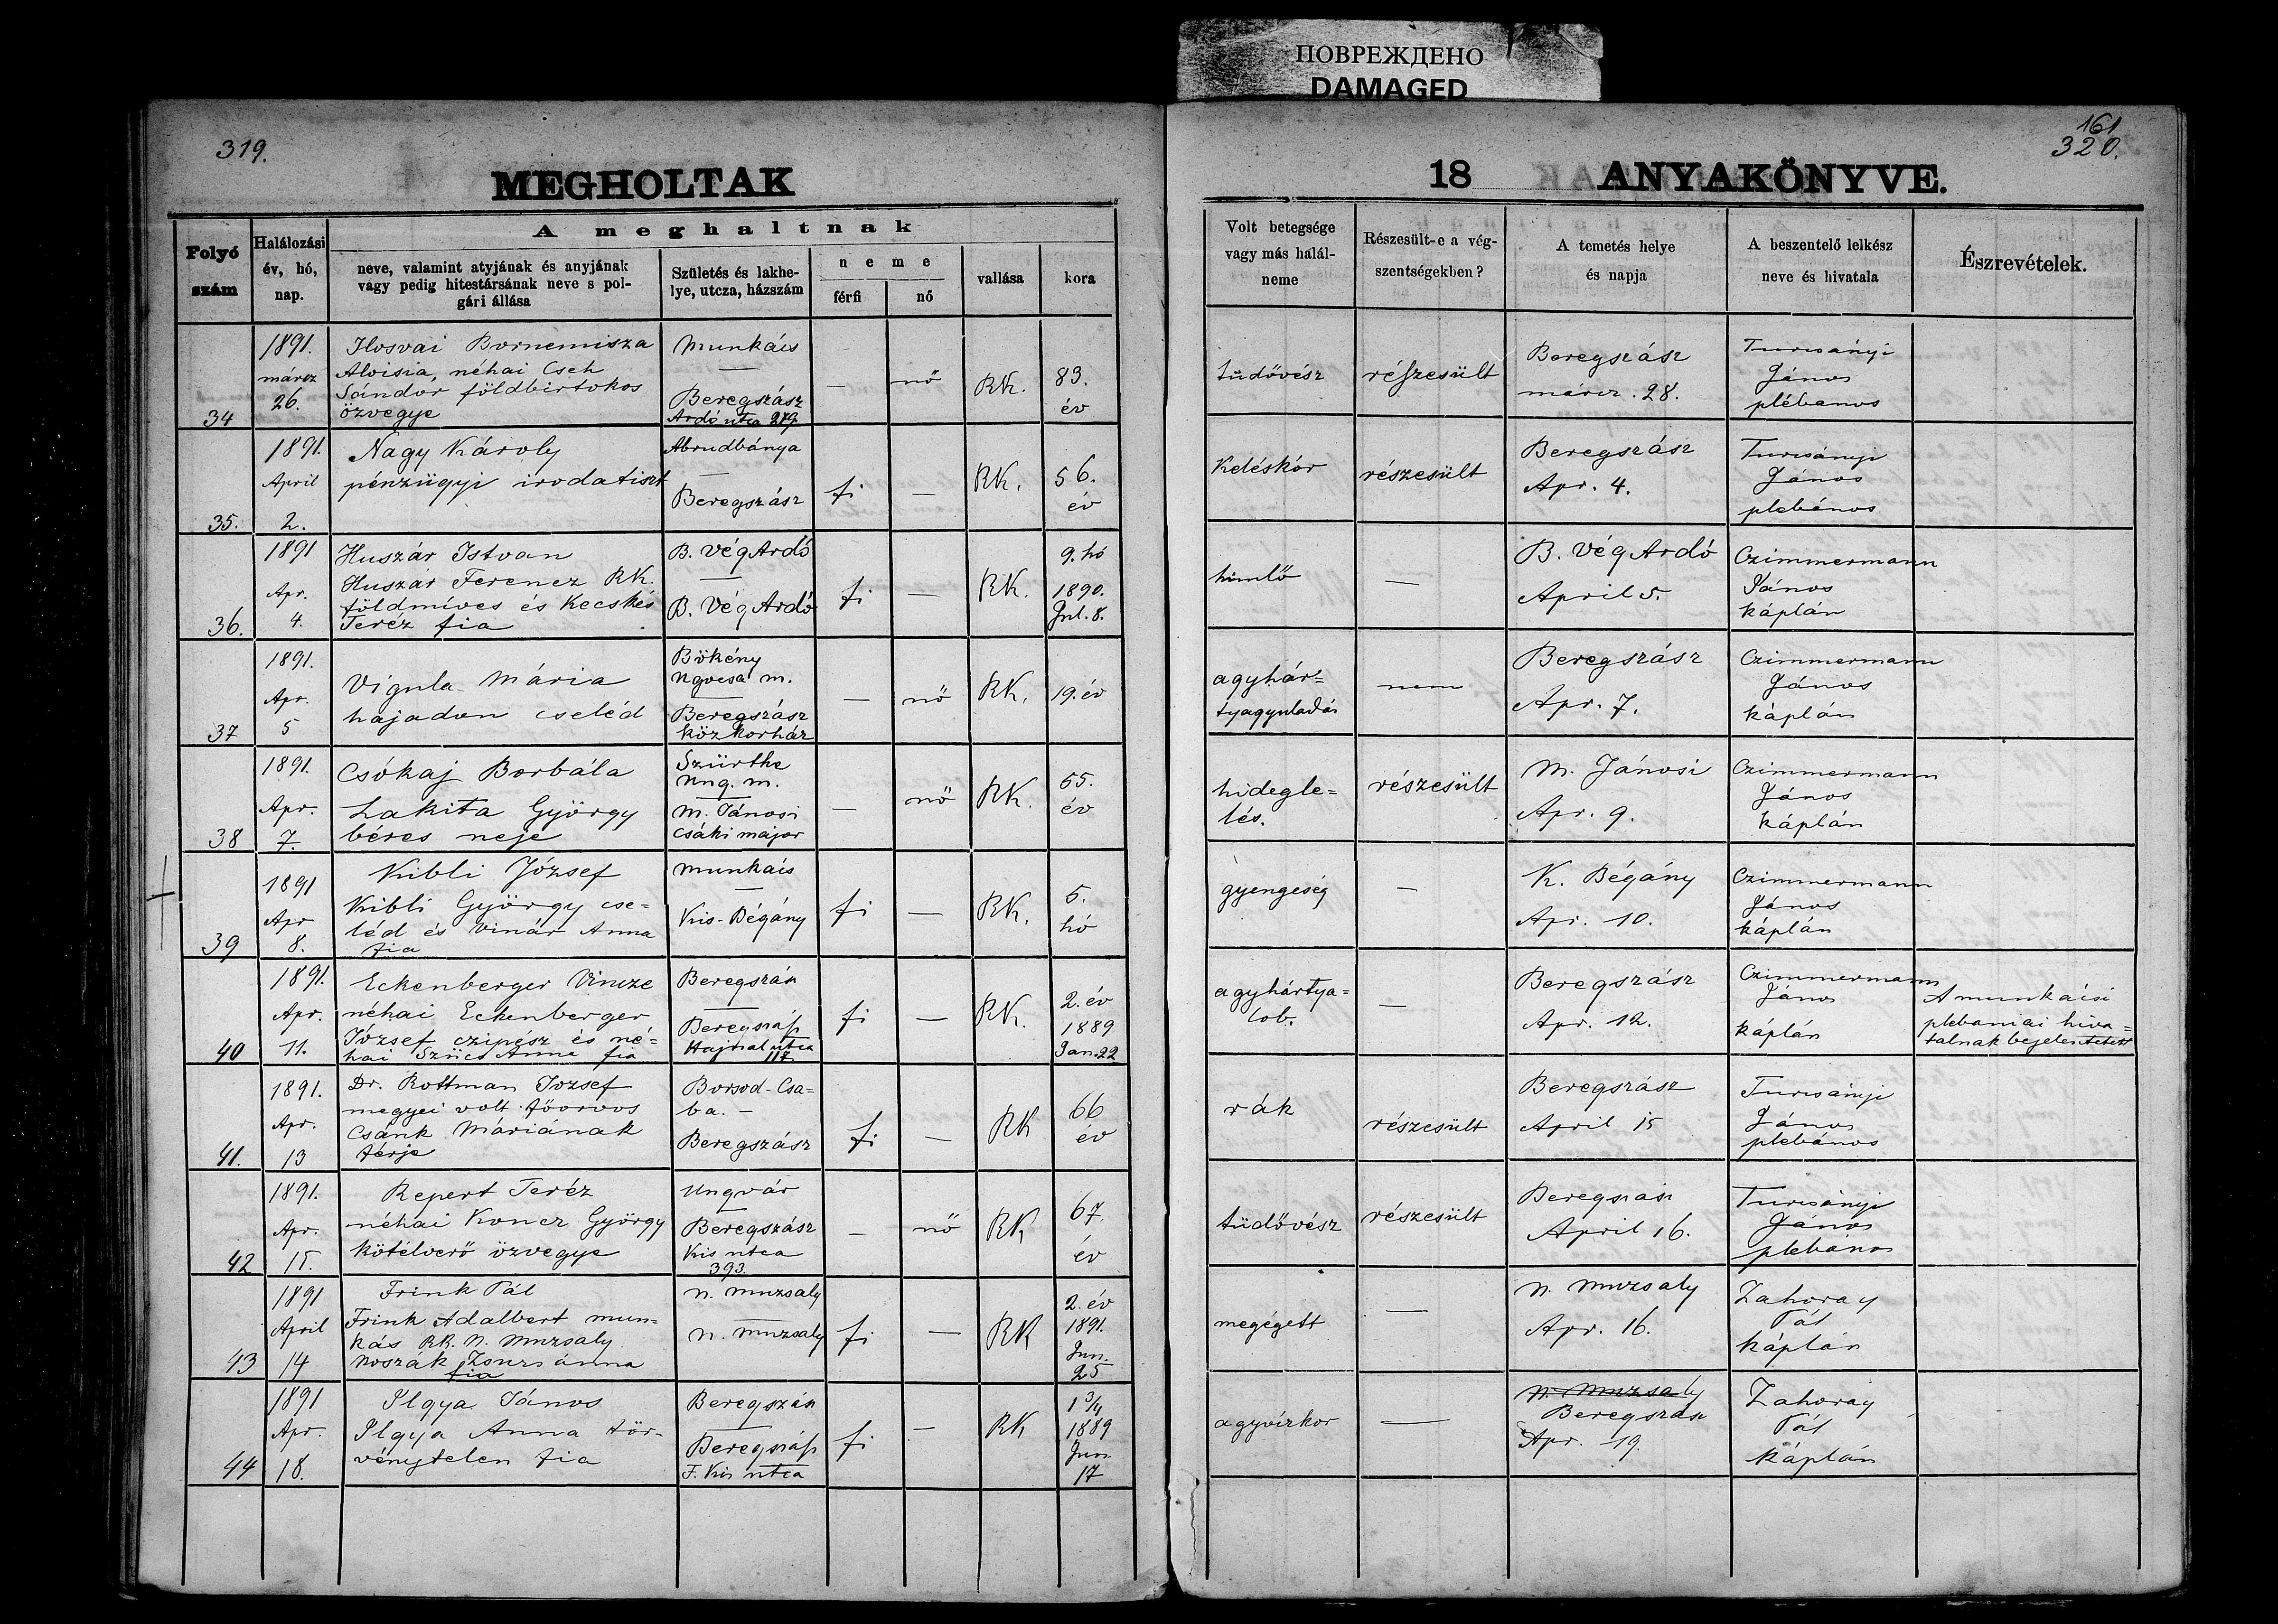 ПОВРЕЖДЕНО
DAMAGED
319.
MEGHOLTAK
Folyó szám
Halálozási év, hó, nap.
A meghaltnak
neve, valamint atyjának és anyjának
vagy pedig hitestársának neve s pol-
gári állása
Születés és lakhe-
lye, utcza, házszám
neme
férfi
nő
vallása
kora
34
1891.
márcz
26.
Ilosvai Bornemisza
Aloisia, néhai Cseh
Sándor földbirtokos
özvegye
Munkács
—
Beregszász
Ardó utca 279.
—
nő
RK.
83.
év
35.
1891.
April
2.
Nagy Károly
pénzügyi irodatiszt
Abrudbánya
—
Beregszász
fi
—
RK.
56.
év
36.
1891
Apr.
4.
Huszár Istvan
Huszár Ferencz RK.
földmíves és Kecskés
Teréz fia
B. Vég Ardó
—
B. Vég Ardó
fi
—
RK.
9. hó
1890.
Jul. 8.
37
1891.
Apr.
5
Vigula Mária
hajadon cseléd
Bökény
Ugocsa m.
—
Beregszász
köz korház
—
nő
RK.
19. év
38
1891.
Apr.
7.
Csókaj Borbála
Lakita György
béres neje
Szürthe
Ung. m.
—
M. Jánosi
Csáki major
—
nő
RK.
55.
év
39
1891
Apr
8.
Kibli József
Kibli György cse=
léd és Vinár Anna
fia
Munkács
—
Kis-Bégány
fi
—
RK.
5.
hó
40
1891.
Apr.
11.
Eckenberger Vincze
néhai Eckenberger
József czipész és né=
hai Szücs Anna fia
Beregszász
—
Beregszász
Hajnal utca
117
fi
—
RK.
2. év
1889
Jan. 22
41.
1891.
Apr.
13
Dr. Rottman Jozsef
megyei volt főorvos
Csánk Máriának
férje
Borsod-Csa=
ba. —
Beregszász
fi
—
RK
66
év
42
1891.
Apr.
15.
Repert Teréz
néhai Koncz György
kötélverő özvegye
Ungvár
—
Beregszász
Kis utca
393.
—
nő
RK
67.
év
43
1891
April
14
Frink Pál
Frink Adalbert mun=
kás RK. N. Muzsaly
Koszák Zsuzsánna
fia
N. Muzsaly
—
N. Muzsaly
fi
—
RK
2. év
1891.
Jun.
25
44
1891
Apr.
18.
Ilgya János
Ilgya Anna tör-
vénytelen fia
Beregszász
—
Beregszász
F. Kis utca
fi
—
RK
1 3/4
1889
Jun.
17
161
320.
18 ANYAKÖNYVE.
Volt betegsége
vagy más halál-
neme
Részesült-e a vég-
szentségekben?
A temetés helye
és napja
A beszentelő lelkész
neve és hivatala
Észrevételek.
tüdővész
részesült
Beregszász
márcz. 28.
Turcsányi
János
plébanos
Keléskór
részesült
Beregszász
Apr. 4.
Turcsányi
János
plebános
himlő
—
B. Vég Ardó
April 5.
Czimmermann
János
káplán
agyhár=
tyagyuladás
nem
Beregszász
Apr. 7.
Czimmermann
János
káplán
hidegle=
lés.
részesült
M. Jánosi
Apr. 9.
Czimmermann
János
káplán
gyengeség
—
K. Bégány
Apr. 10.
Czimmermann
János
káplán
agyhártya=
lob.
—
Beregszász
Apr. 12.
Czimmermann
János
káplán
A munkácsi
plebaniai hiva=
talnak bejelentetett
rák
részesült
Beregszász
April 15
Turcsányi
János
plebános
tüdővész
részesült
Beregszász
April 16.
Turcsányi
János
plebános
megégett
—
N. Muzsaly
Apr. 16.
Zahoray
Pál
káplán
agyvízkor
—
N. Muzsaly
Beregszász
Apr. 19.
Zahoray
Pál
káplán